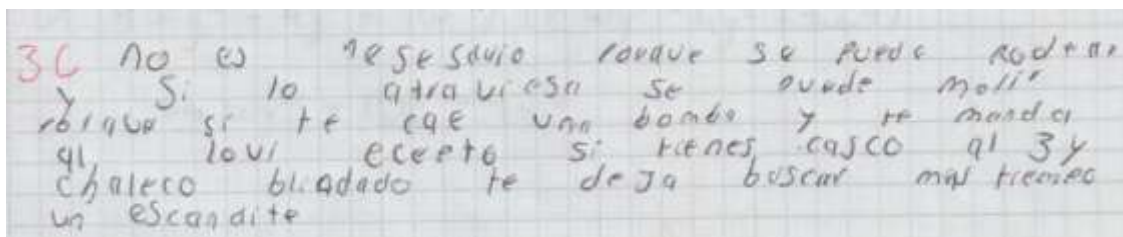 3C no es nesesario porque se puede rodear
y si lo atraviesa se puede morir
porque si te cae una bomba y te manda
al lovi ecepto si tienes casco al 3 y
chaleco bliadado te deja buscar mas tiempo
un escandite